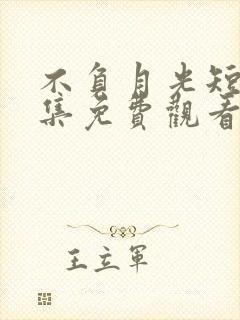 不負月光短
集免費觀看
王立軍